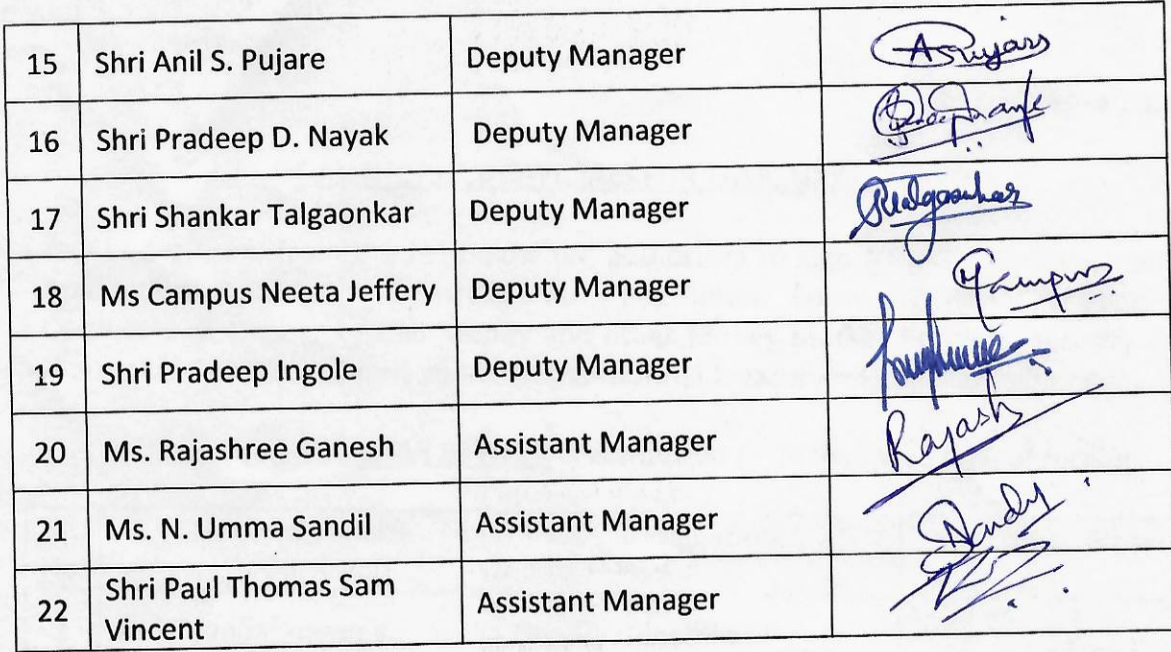 15 Shri Anil S. Pujare Deputy Manager ASPujare
16 Shri Pradeep D. Nayak Deputy Manager
17 Shri Shankar Talgaonkar Deputy Manager Talgaonkar
18 Ms Campus Neeta Jeffery Deputy Manager Campus
19 Shri Pradeep Ingole Deputy Manager
20 Ms. Rajashree Ganesh Assistant Manager Rajash
21 Ms. N. Umma Sandil Assistant Manager
22 Shri Paul Thomas Sam
Vincent Assistant Manager